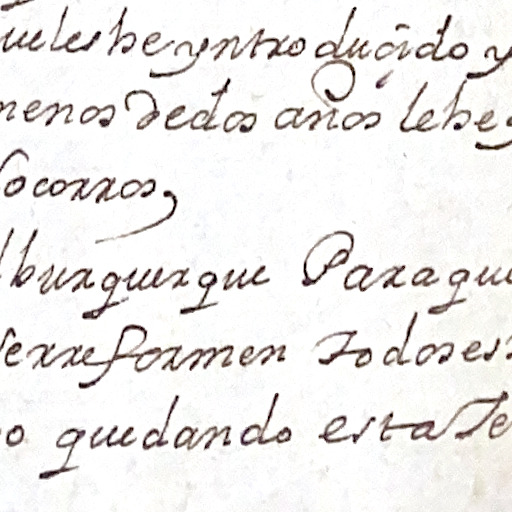 ue les he yntroduçido y
menos de dos años le he
socorros,
lburquerque Para que
se rreformen todos es
o quedando esta